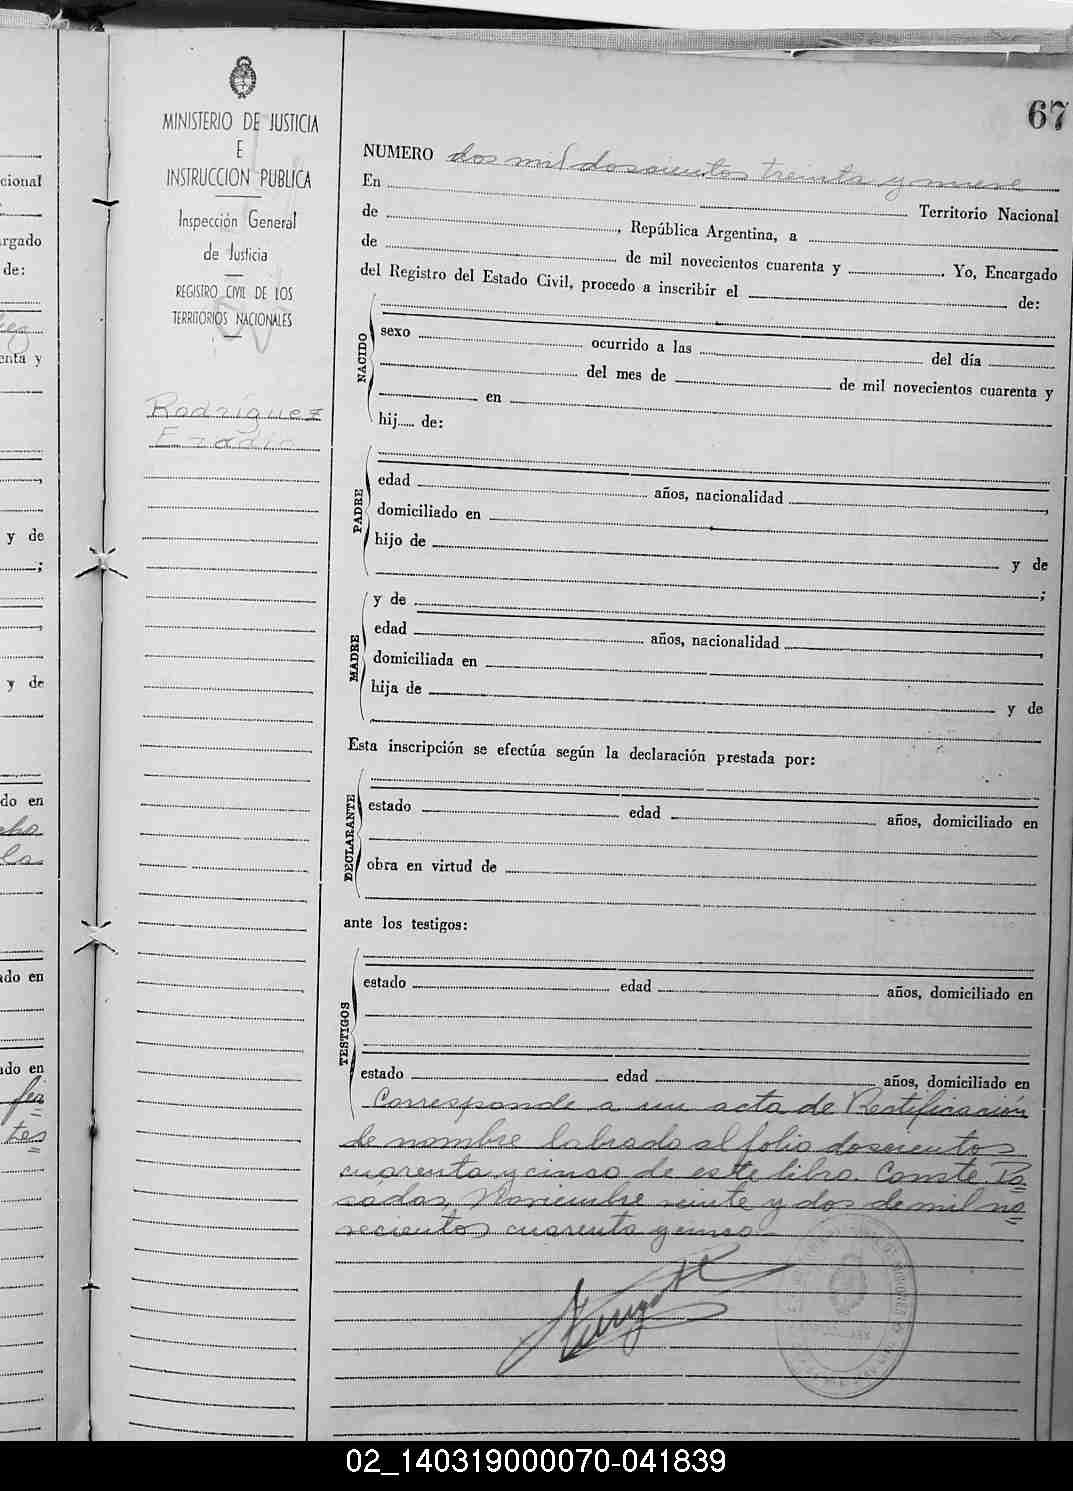 67
MINISTERIO DE JUSTICIA
E
INSTRUCCION PUBLICA
Inspección General
de Justicia
REGISTRO CIVIL DE LOS
TERRITORIOS NACIONALES
Rodríguez
NUMERO dos mil doscientos treinta y nueve
En ........ Territorio Nacional
de ........, República Argentina, a ........
de ........ de mil novecientos cuarenta y ......... Yo, Encargado
del Registro del Estado Civil, procedo a inscribir el ........ de:
NACIDO
sexo ........ ocurrido a las ........ del día ........
........ del mes de ........ de mil novecientos cuarenta y
........ en ........
hij..... de:
PADRE
edad ........ años, nacionalidad ........,
domiciliado en ........
hijo de ........ y de
........;
MADRE
y de ........
edad ........ años, nacionalidad ........,
domiciliada en ........
hija de ........ y de
Esta inscripción se efectúa según la declaración prestada por:
DECLARANTE
estado ........ edad ........ años, domiciliado en
obra en virtud de ........
ante los testigos:
TESTIGOS
estado ........ edad ........ años, domiciliado en
estado ........ edad ........ años, domiciliado en
Corresponde a un acta de Rectificación
de nombre labrada al folio doscientos
cuarenta y cinco de este libro. Conste. Po
sadas, Noviembre veinte y dos de mil no
vecientos cuarenta y cinco
cional
rgado
de:
enta y
y de
;
y de
do en
ado en
ado en
02_140319000070-041839